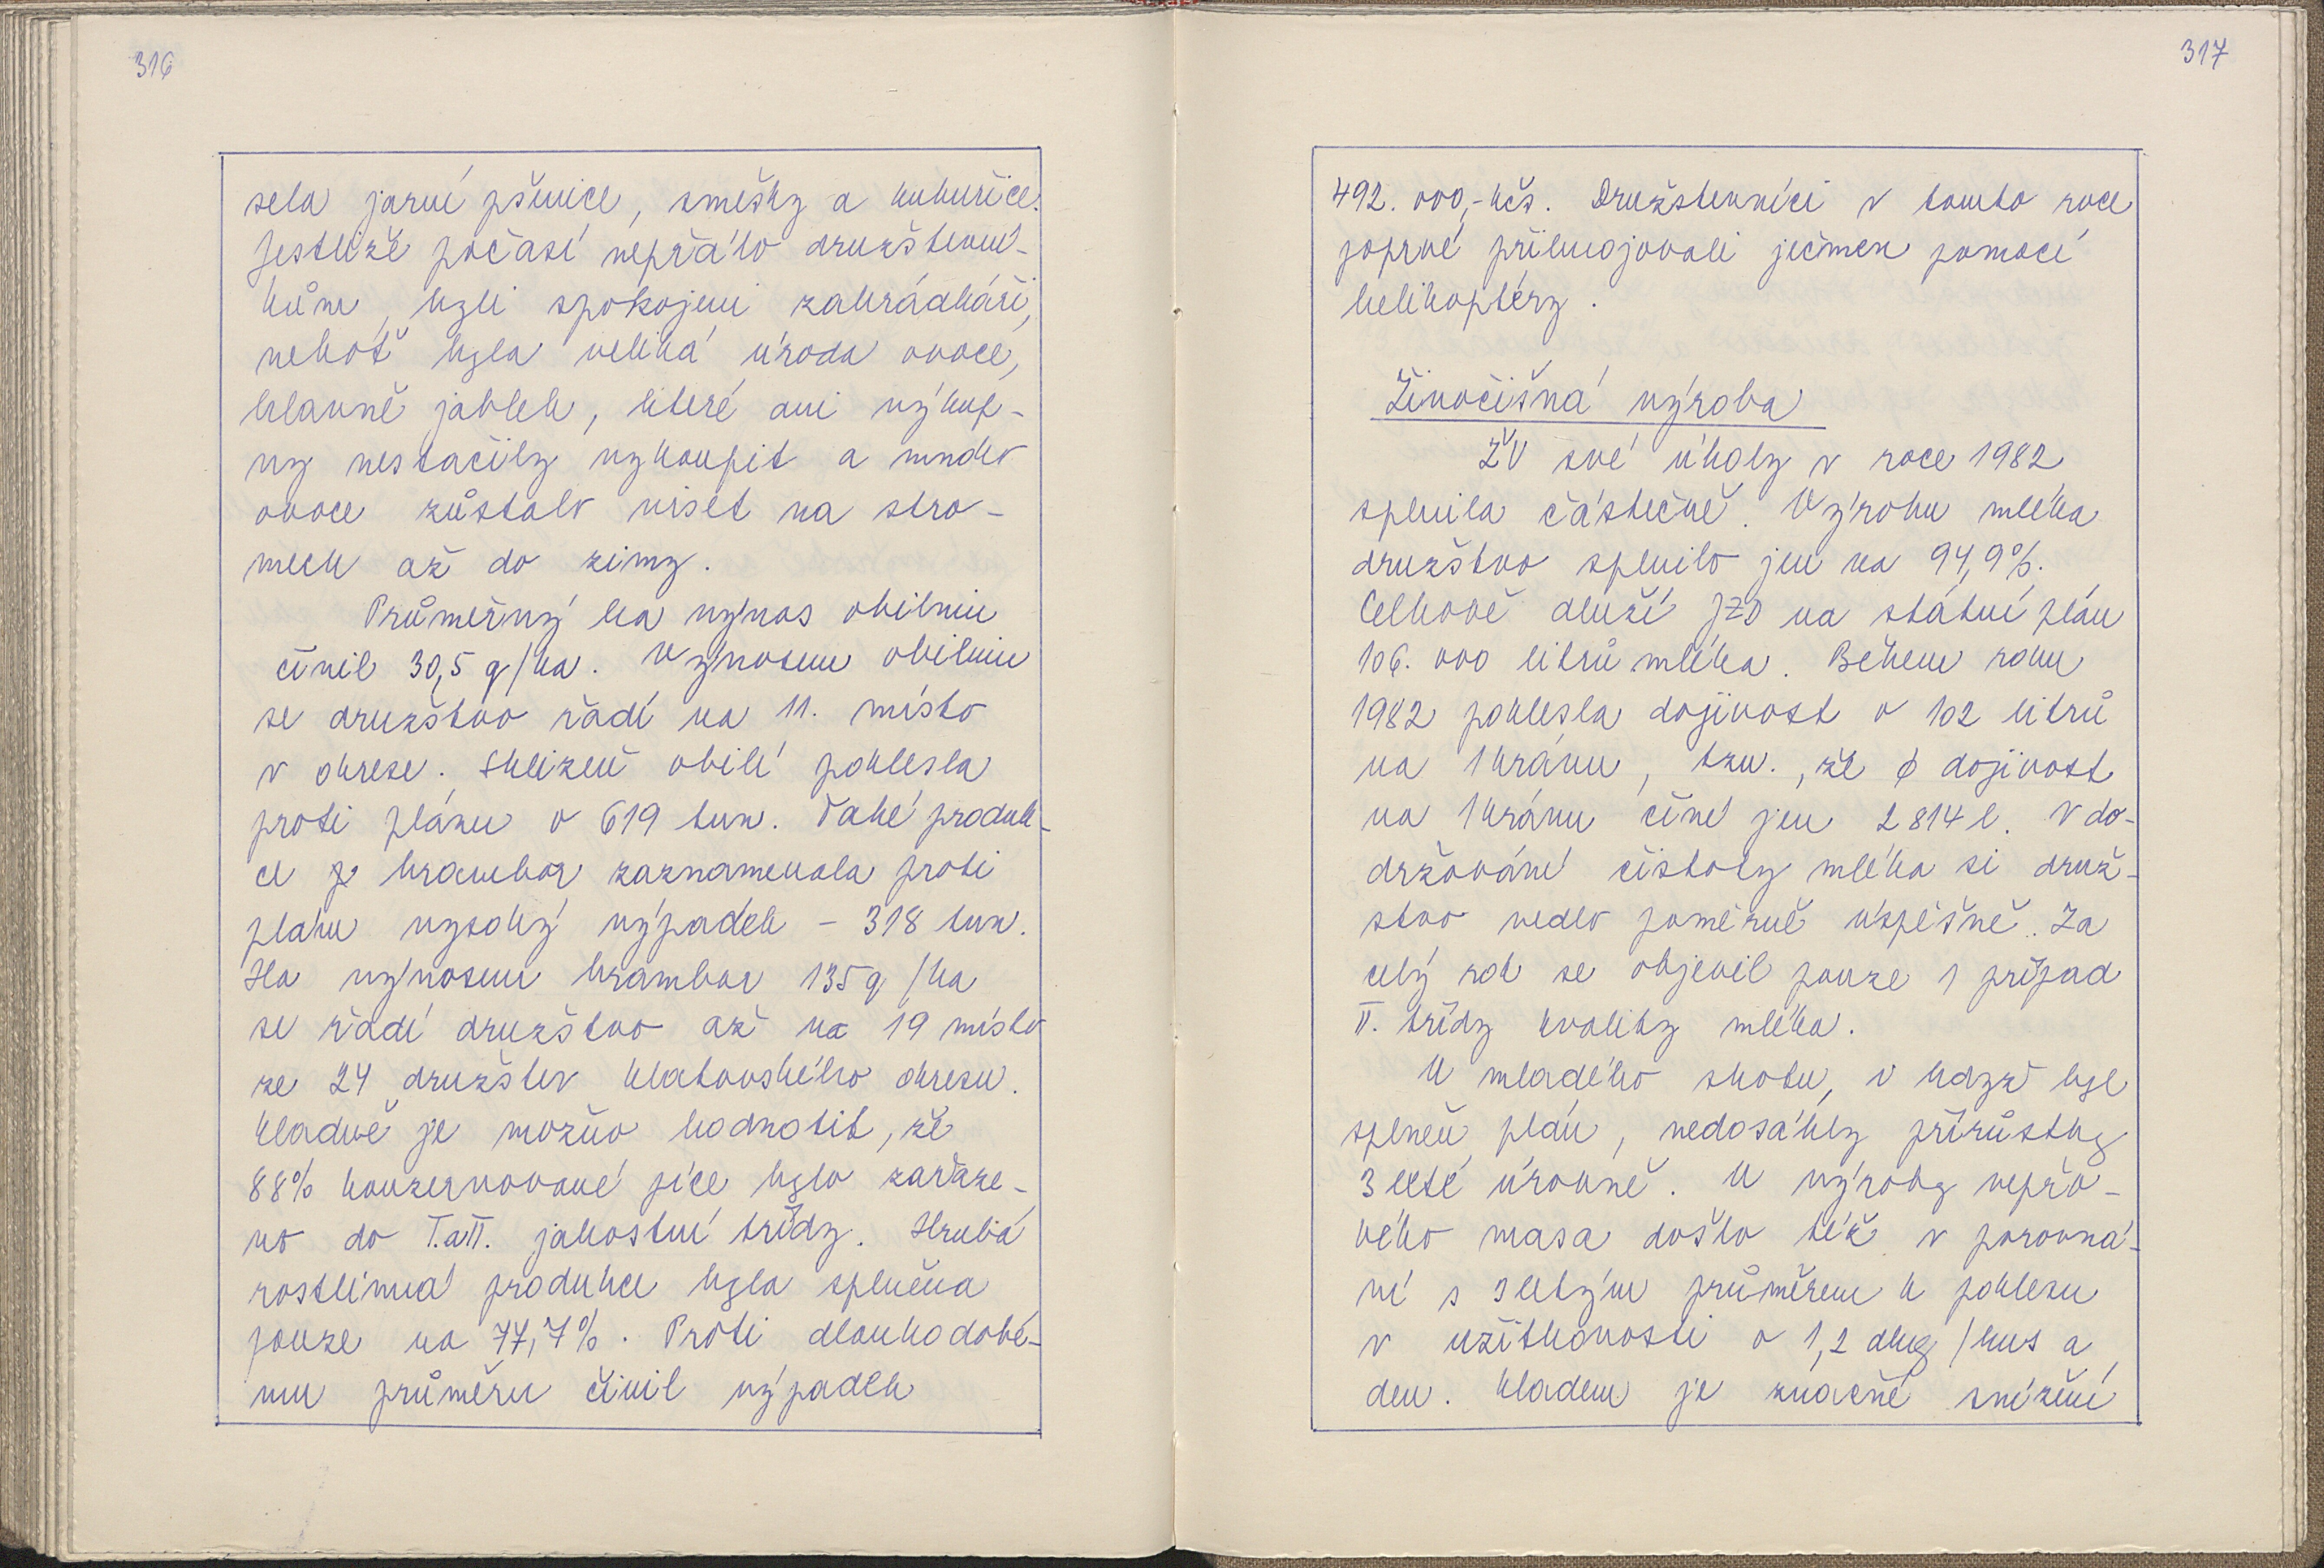 316
sela jarní pšenice, směsky a kukuřice.
Jestliže počasí nepřálo družstevní-
kům, byli spokojeni zahrádkáři,
neboť byla veliká úroda ovoce,
hlavně jablek, které ani výkup-
ny nestačily vykoupit a mnoho
ovoce zůstalo viset na stro-
mech až do zimy.
Průměrný ha výnos obilnin
činil 30,5 q/ha. Výnosem obilnin
se družstvo řadí na 11. místo
v okrese. Sklizeň obilí poklesla
proti plánu o 619 tun. Také produk-
ce brambor zaznamenala proti
plánu vysoký výpadek - 318 tun.
Ha výnosem brambor 135 q/ha
se řadí družstvo až na 19 místo
ze 24 družstev klatovského okresu.
Kladně je možno hodnotit, že
88% konzervované píce bylo zařaze-
no do I. a II. jakostní třídy. Hrubá
rostlinná produkce byla splněna
pouze na 77,7%. Proti dlouhodobé-
mu průměru činil výpadek
317
492.000,- kčs. Družstevníci v tomto roce
poprvé přihnojovali ječmen pomocí
helikoptéry.
Živočišná výroba
ŽV své úkoly v roce 1982
splnila částečně. Výrobu mléka
družstvo splnilo jen na 94,9%.
Celkově dluží JZD na státní plán
106.000 litrů mléka. Během roku
1982 poklesla dojivost o 102 litrů
na 1 krávu, tzn., že ø dojivost
na 1 krávu činí jen 2 814 l. V do-
držování čistoty mléka si druž-
stvo vedlo poměrně úspěšně. Za
celý rok se objevil pouze 1 případ
II. třídy kvality mléka.
U mladého skotu, i když byl
splněn plán, nedosáhly přírůstky
3 leté úrovně. U výroby vepřo-
vého masa došlo též v porovná-
ní s 3 letým průměrem k poklesu
v užitkovosti o 1,2 dkg/kus a
den. Kladem je značné snížení